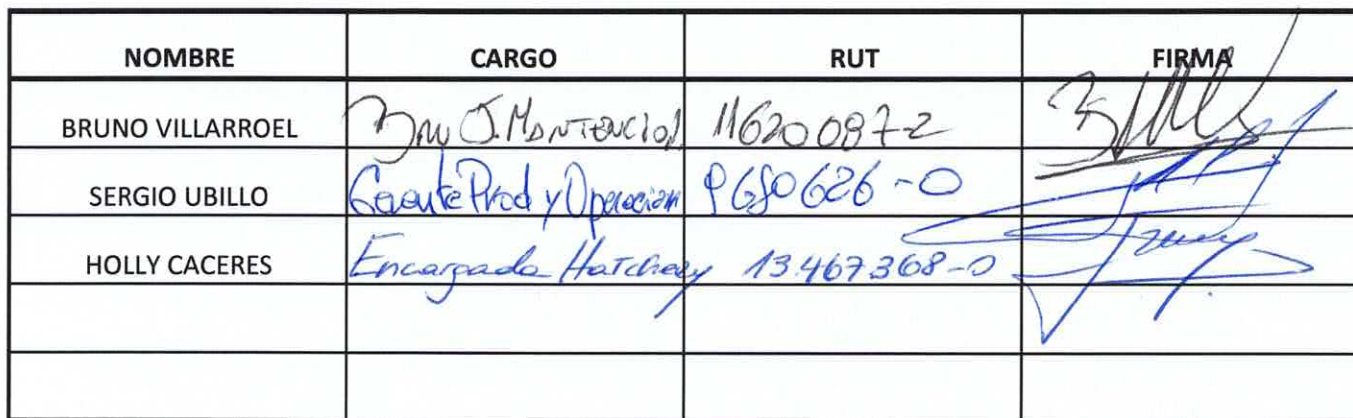 NOMBRE CARGO RUT FIRMA
BRUNO VILLARROEL J. MANTENCION 11620097-2
SERGIO UBILLO Gerente Prod y Operacion 9680626-0
HOLLY CACERES Encargada Hatchery 13.467.368-0